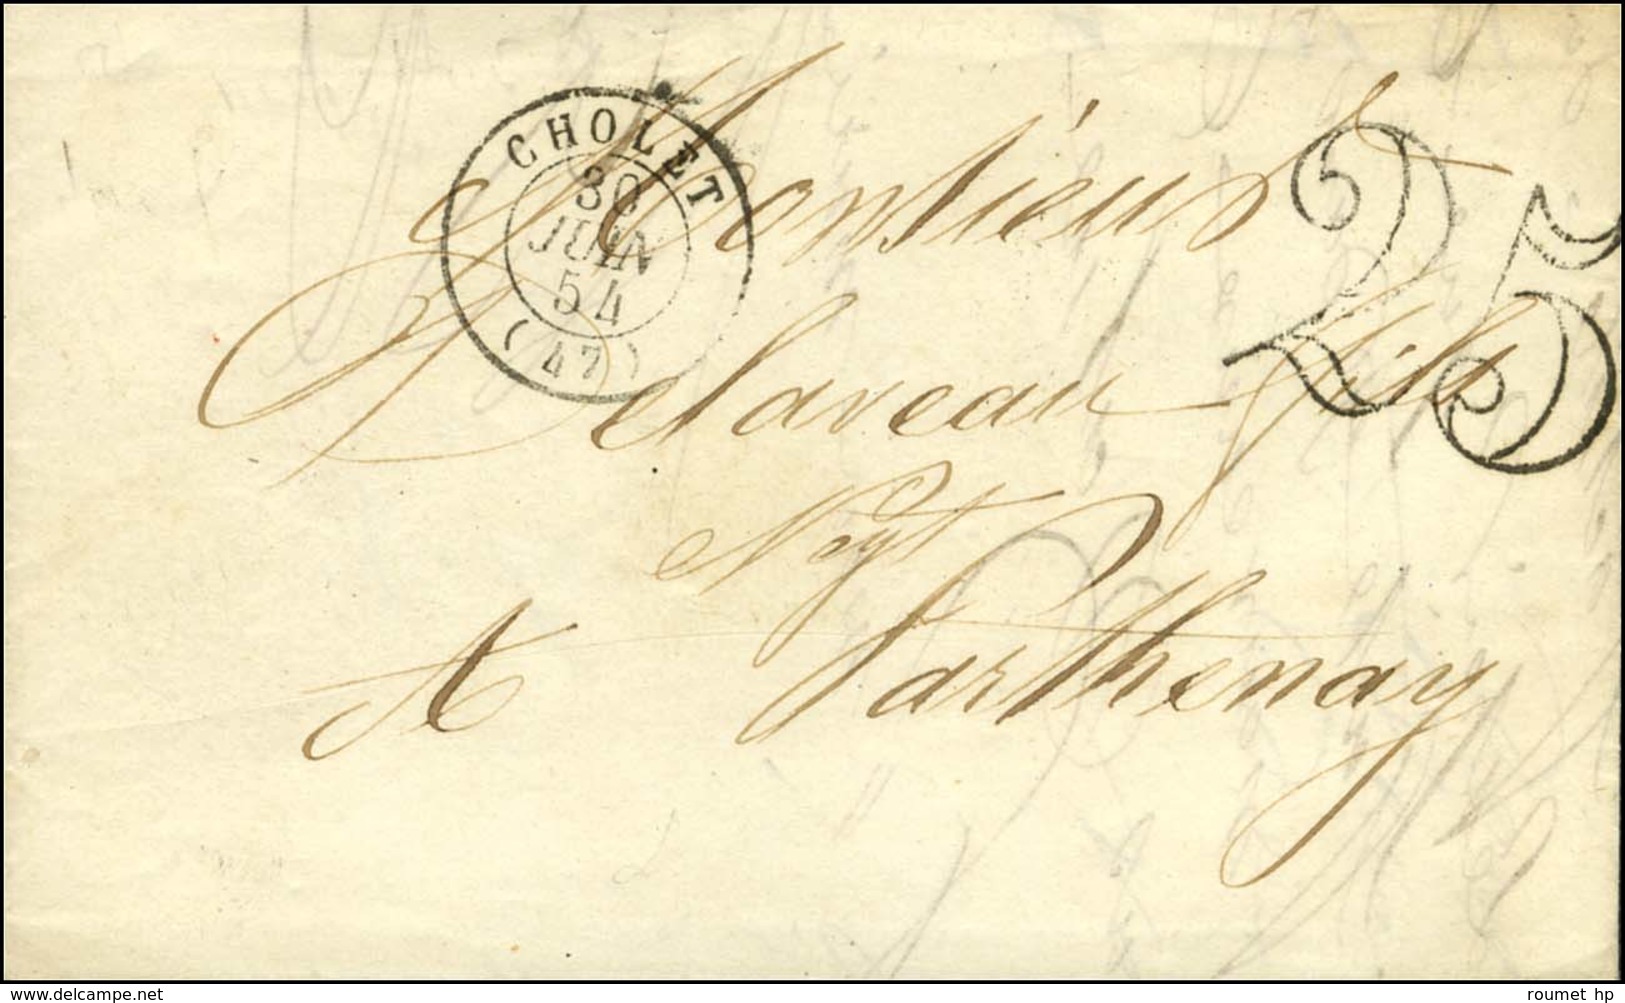 CHOLET
30
JUIN
54
(47)
25
Monsieur
Delaveau fils
Négt
A Parthenay
delcampe.net
roumet hp